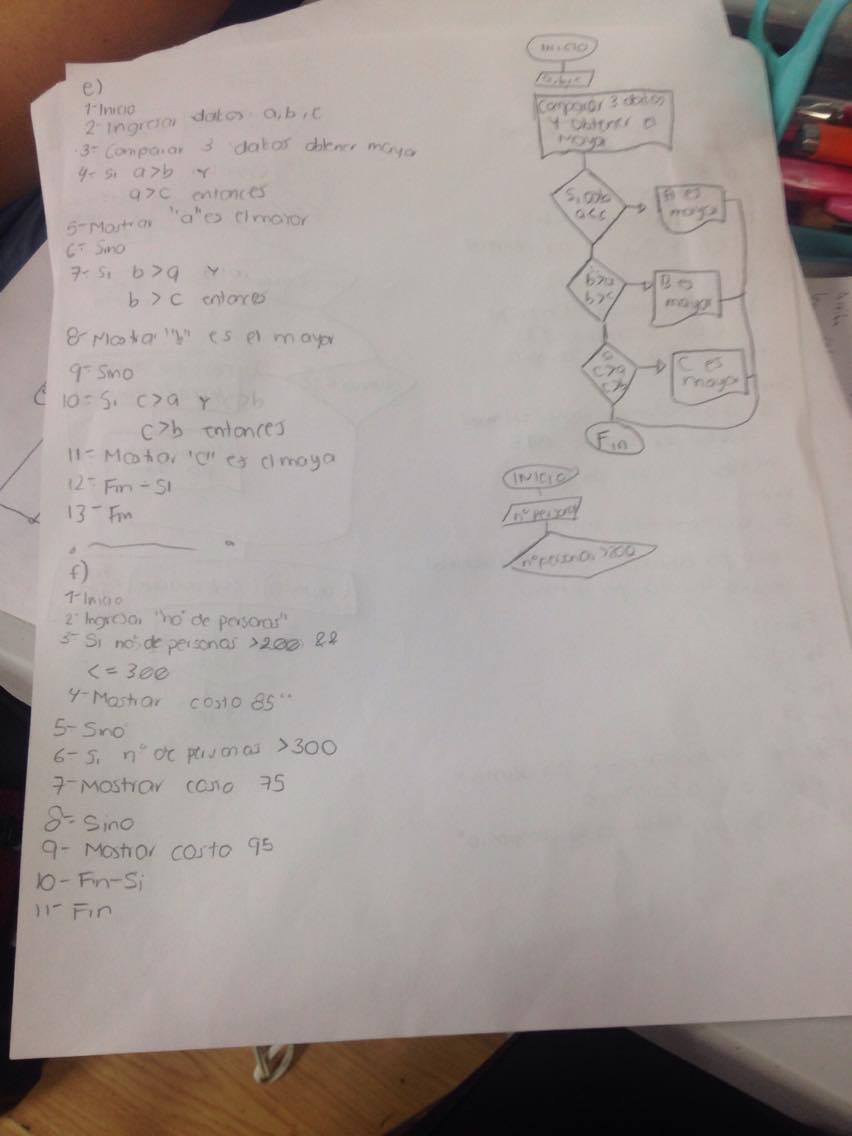 e)
1-Inicio
2-Ingresar datos a,b,c
3-Comparar 3 datos obtener maya
4- Si a>b y
a>c entonces
5-Mostrar "a" es el mayor
6- Sino
7- Si b>a y
b>c entonces
8-Mostrar "b" es el mayor
9- Sino
10- Si c>a y c>b
c>b entonces
11- Mostrar "c" es el maya
12- Fin-Si
13- Fin
f)
1-Inicio
2-Ingresar "no de personas"
3- Si no de personas >200 &&
<= 300
4-Mostrar costo 85"
5-Sino
6- Si n° de personas >300
7-Mostrar costo 75
8- Sino
9- Mostrar costo 95
10- Fin-Si
11- Fin
INICIO
a,b,c
Comparar 3 datos
y obtener el
maya
Si a>b
a<c
A es
maya
b>a
b>c
B es
maya
c>a
c>b
C es
maya
Fin
INICIO
n° personas
n° personas >200